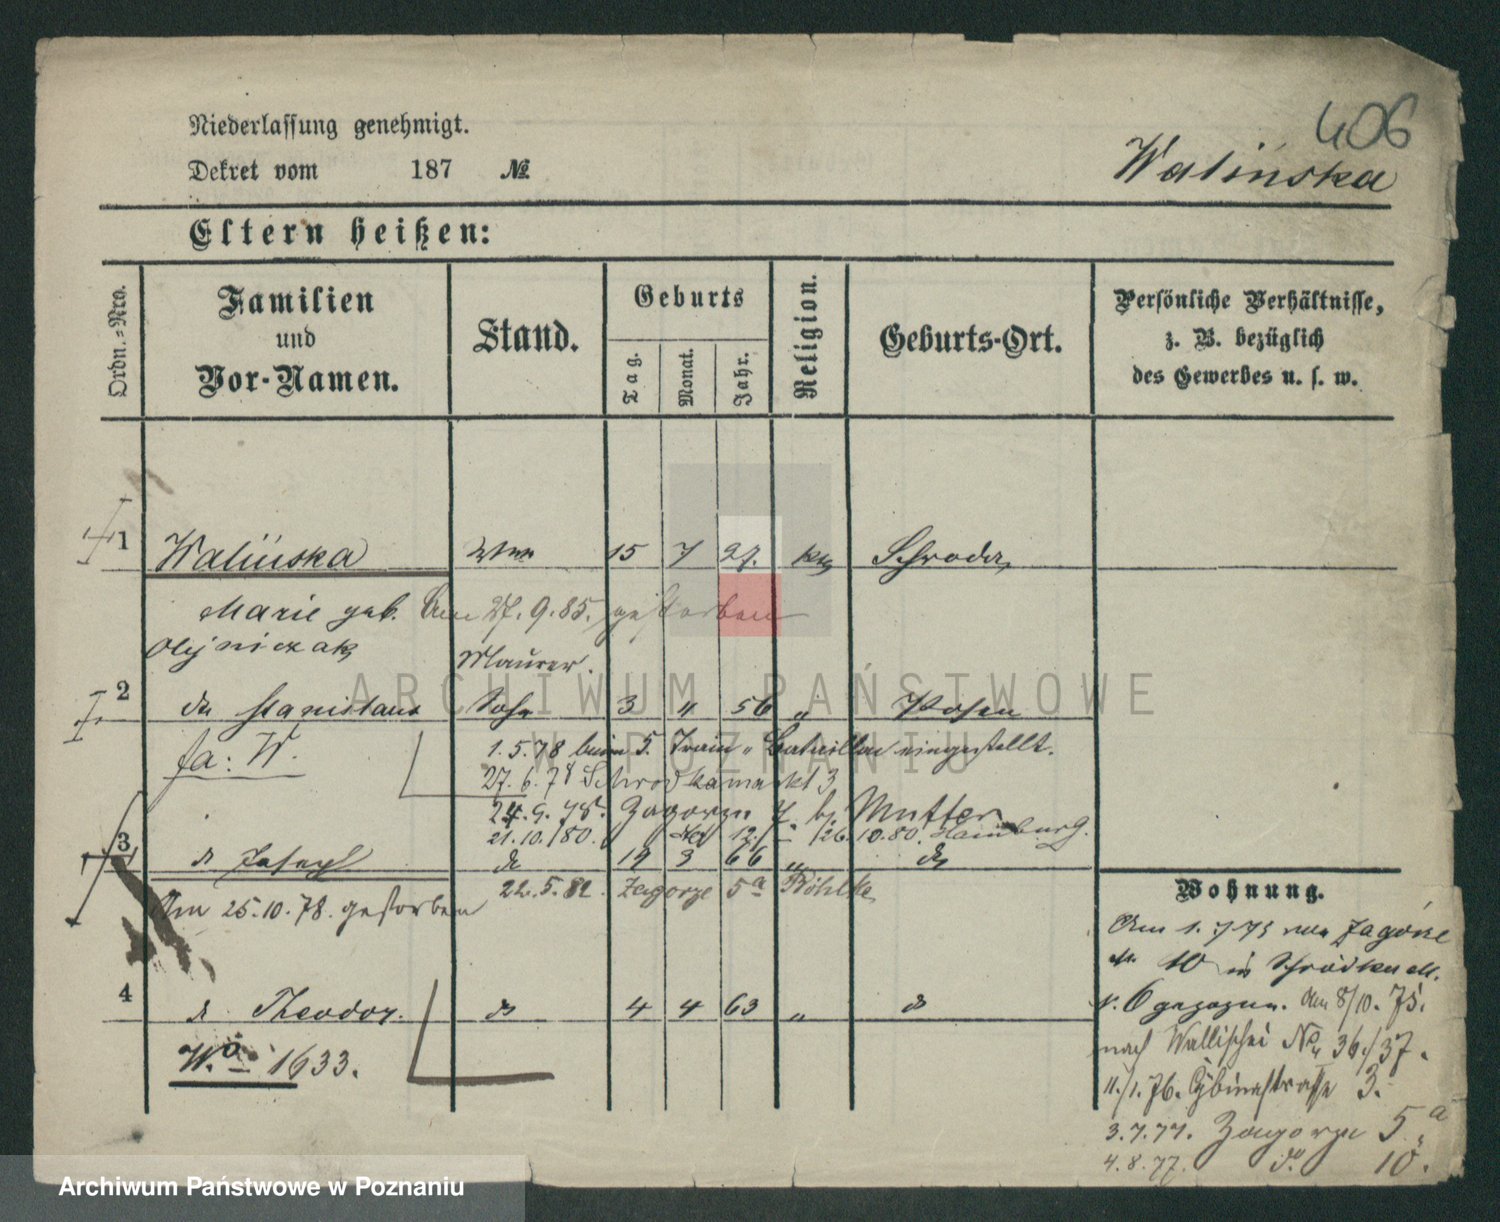 406
Walińska
Niederlassung genehmigt.
Dekret vom 187 №
Eltern heißen:
Ordn.-Nro.
Familien
und
Vor-Namen.
Stand.
Geburts
Tag.
Monat.
Jahr.
Religion.
Geburts-Ort.
Persönliche Verhältnisse,
z. B. bezüglich
des Gewerbes u. s. w.
1 Walińska Wwe 15 7 27. kth Schroda
Marie geb. Am 27. 9. 85. gestorben
Olejniczak
Maurer.
2 do Stanislaus Sohn 3 11 56 " Posen
fa: W.
1. 5. 78 beim 5. Train-Bataillon eingestellt.
27. 6. 78 Schrodkamarkt 3
24. 9. 78. Zagorze 7 bj Mutter
21. 10. /80. 12. /26. 10. 80. Hamburg.
3 do Joseph do 19 3 66 " do
22. 5. 82. Zagorze 5a Böhlke
Am 25. 10. 78. gestorben
4 do Theodor. do 4 4 63 " do
Wo 1633.
Wohnung.
Am 1. 7 75 von Zagórze
№ 10 in Schrodka M.
N. 6 gezogen. Am 8/10. 75.
nach Wallischei No 36./37.
11./1. 76. Cybinastrasse 3.
3. 7. 77. Zagorze 5a
4. 8. 77. do. 10.
ARCHIWUM PAŃSTWOWE
W POZNANIU
Archiwum Państwowe w Poznaniu